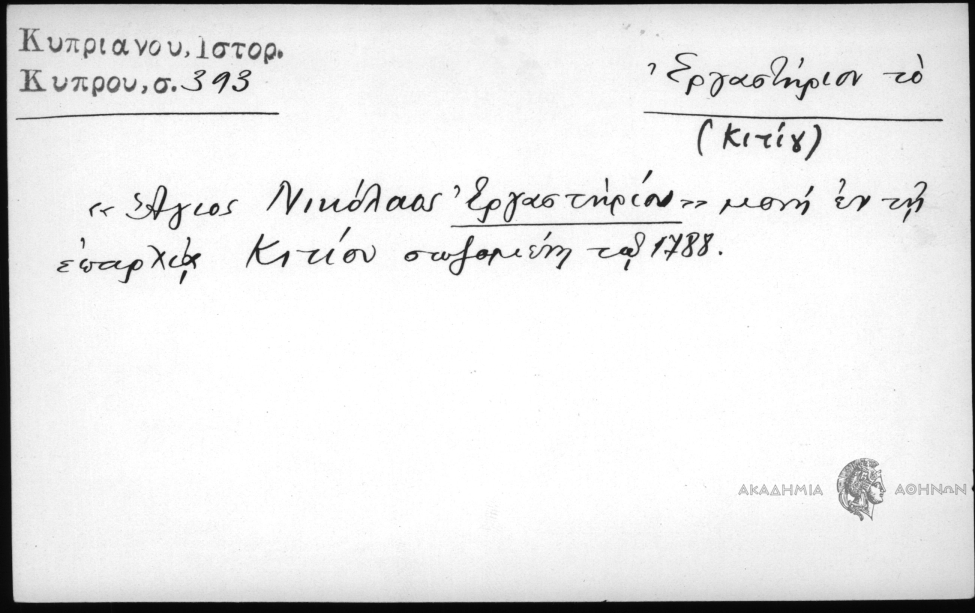 Κυπριανου, Ιστορ.
Κυπρου, σ. 393
Ἐργαστήριον τὸ
(Κιτίȣ)
«Ἅγιος Νικόλαος Ἐργαστηρίου» μονή ἐν τῇ
ἐπαρχίᾳ Κιτίου σωζομένη τῷ 1788.
ΑΚΑΔΗΜΙΑ ΑΘΗΝΩΝ